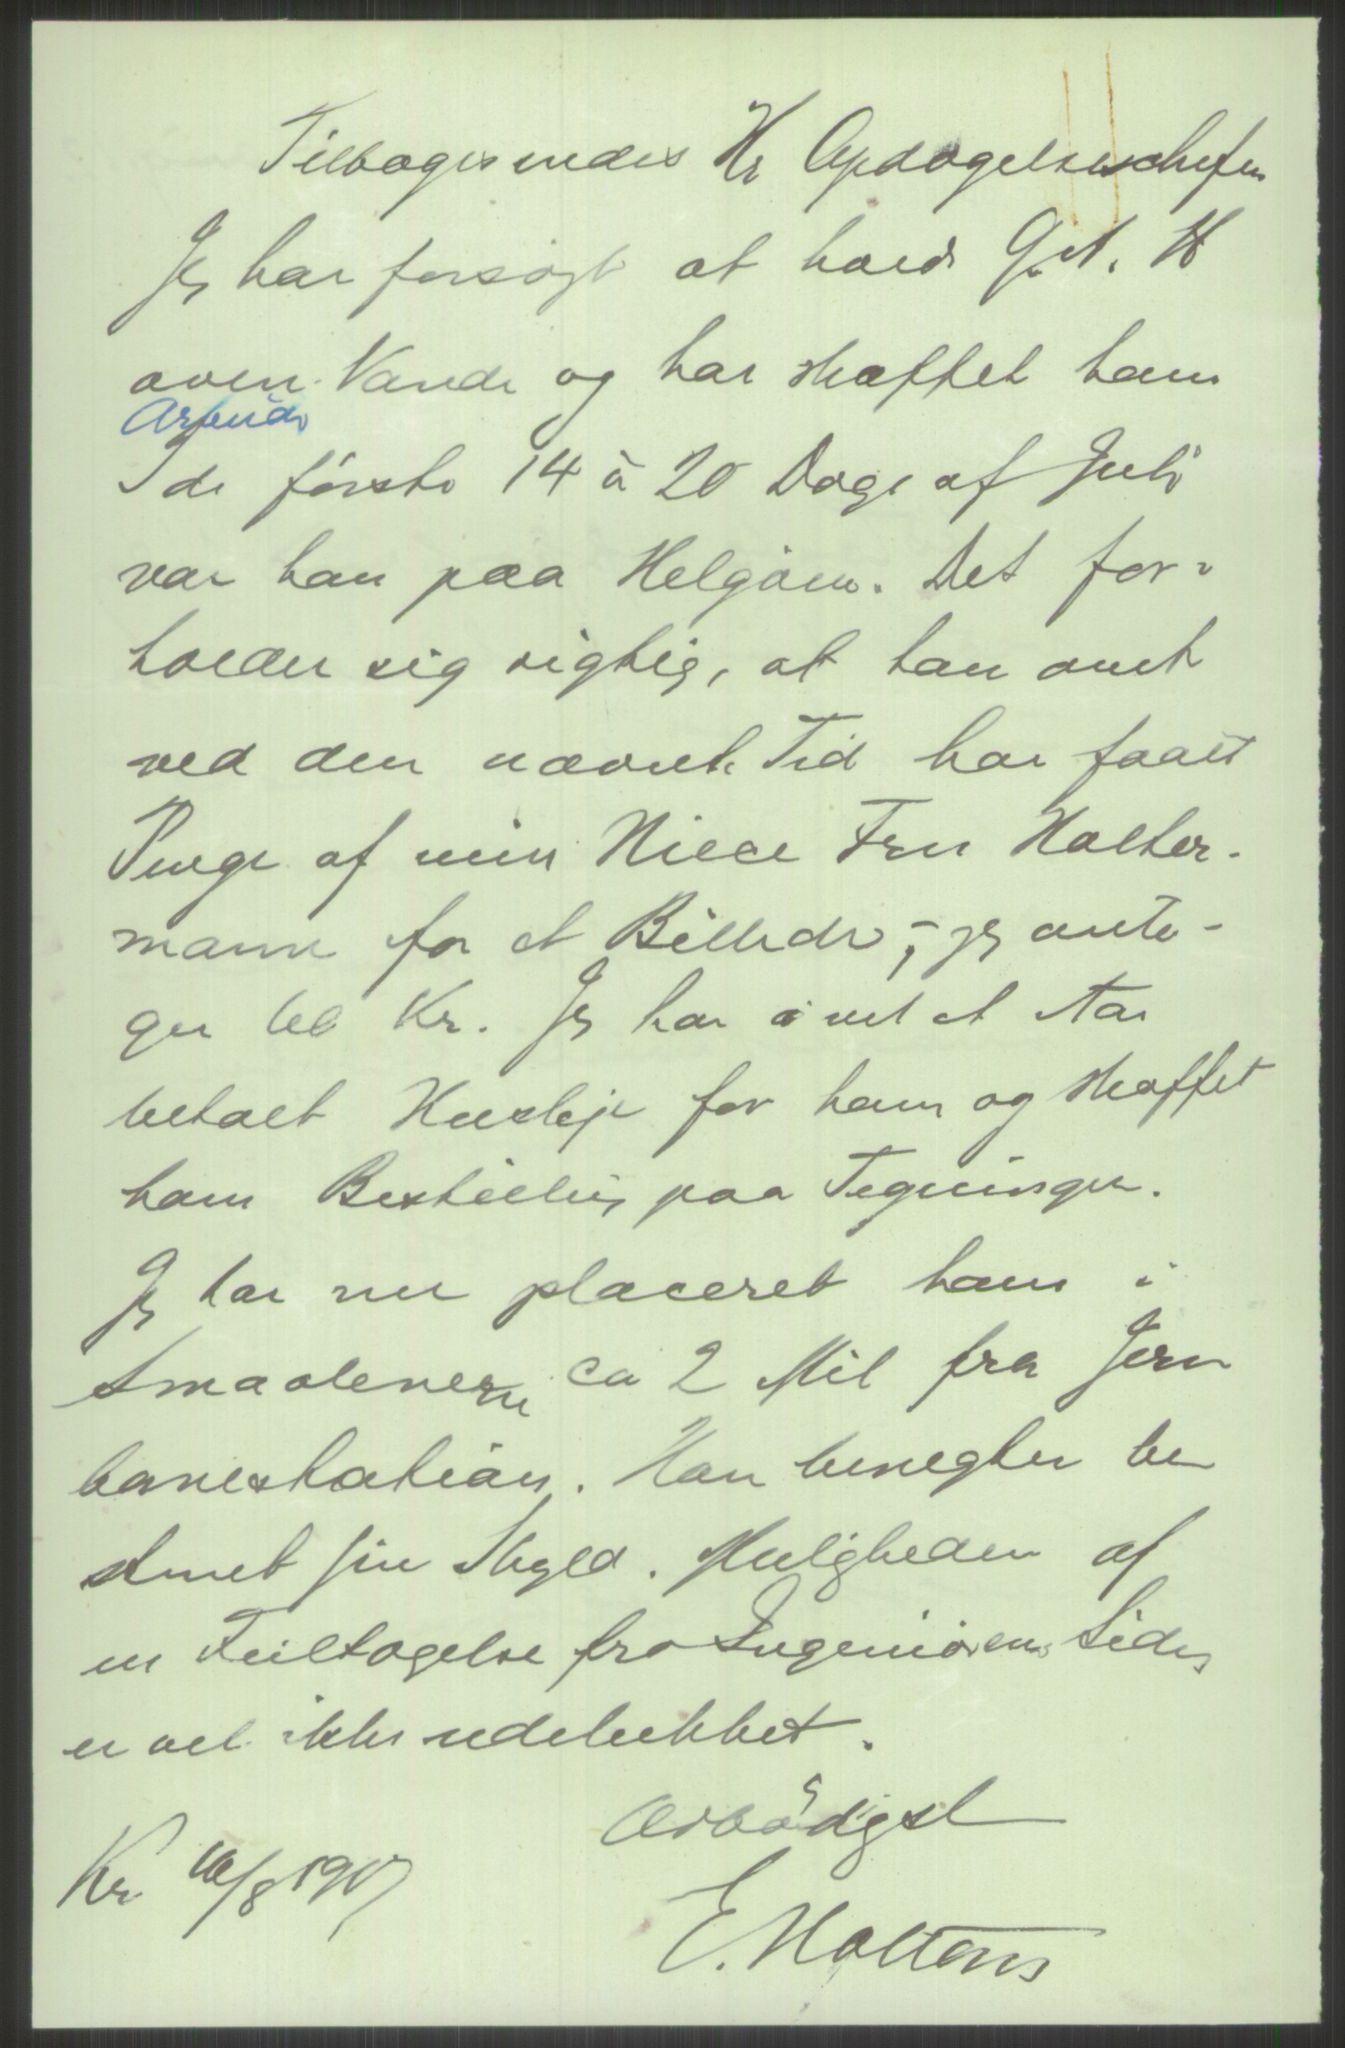 Tilbagesendes Hr Opdagelseschefen
Jeg har forsøgt at holde G. A. H
oven Vande og har skaffet ham
Arbeide
I de første 14 à 20 Dage af Juli
var han paa Helgøen. Det for-
holder sig rigtig, at han omt
ved den nævnte Tid har faaet
Penge af min Niece Fru Holter-
mann for et Billede, – jeg anta-
ger Kr. Jeg har i vel et Aar
betalt Husleje for ham og skaffet
ham Bestilling paa Tegninger.
Jeg har nu placeret ham i
Smaalenene ca 2 Mil fra Jern
banestation. Han benegter be
stemt sin Skyld. Muligheden af
en Feiltagelse fra Ingeniørens Side
er vel ikke udelukket.
Ærbødigst
Kr. 10/8 1917
E. Holtens